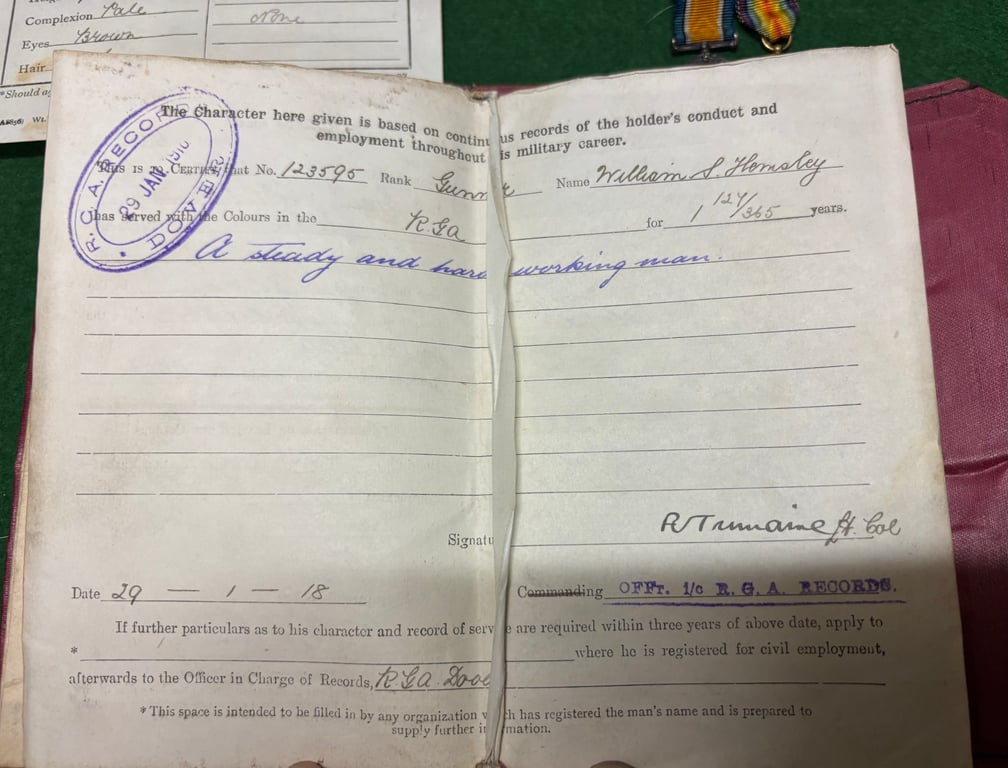 Complexion Pale
None
Eyes Brown
Hair
*Should
The Character here given is based on contin us records of the holder's conduct and
employment throughout is military career.
R.G.A. RECO
29 JAN. 1918
DOVER
This is to Certify that No. 123595 Rank Gunn r Name William S. Homsley
has served with the Colours in the R.G.A for 1 127/365 years.
A steady and hard working man.
Signatu Lt. Col
Date 29 — 1 — 18 Commanding OFFr. I/c R. G. A. RECORDS.
If further particulars as to his character and record of serv e are required within three years of above date, apply to
* where he is registered for civil employment,
afterwards to the Officer in Charge of Records, R.G.A. Dove
* This space is intended to be filled in by any organization w ch has registered the man's name and is prepared to
supply further in mation.